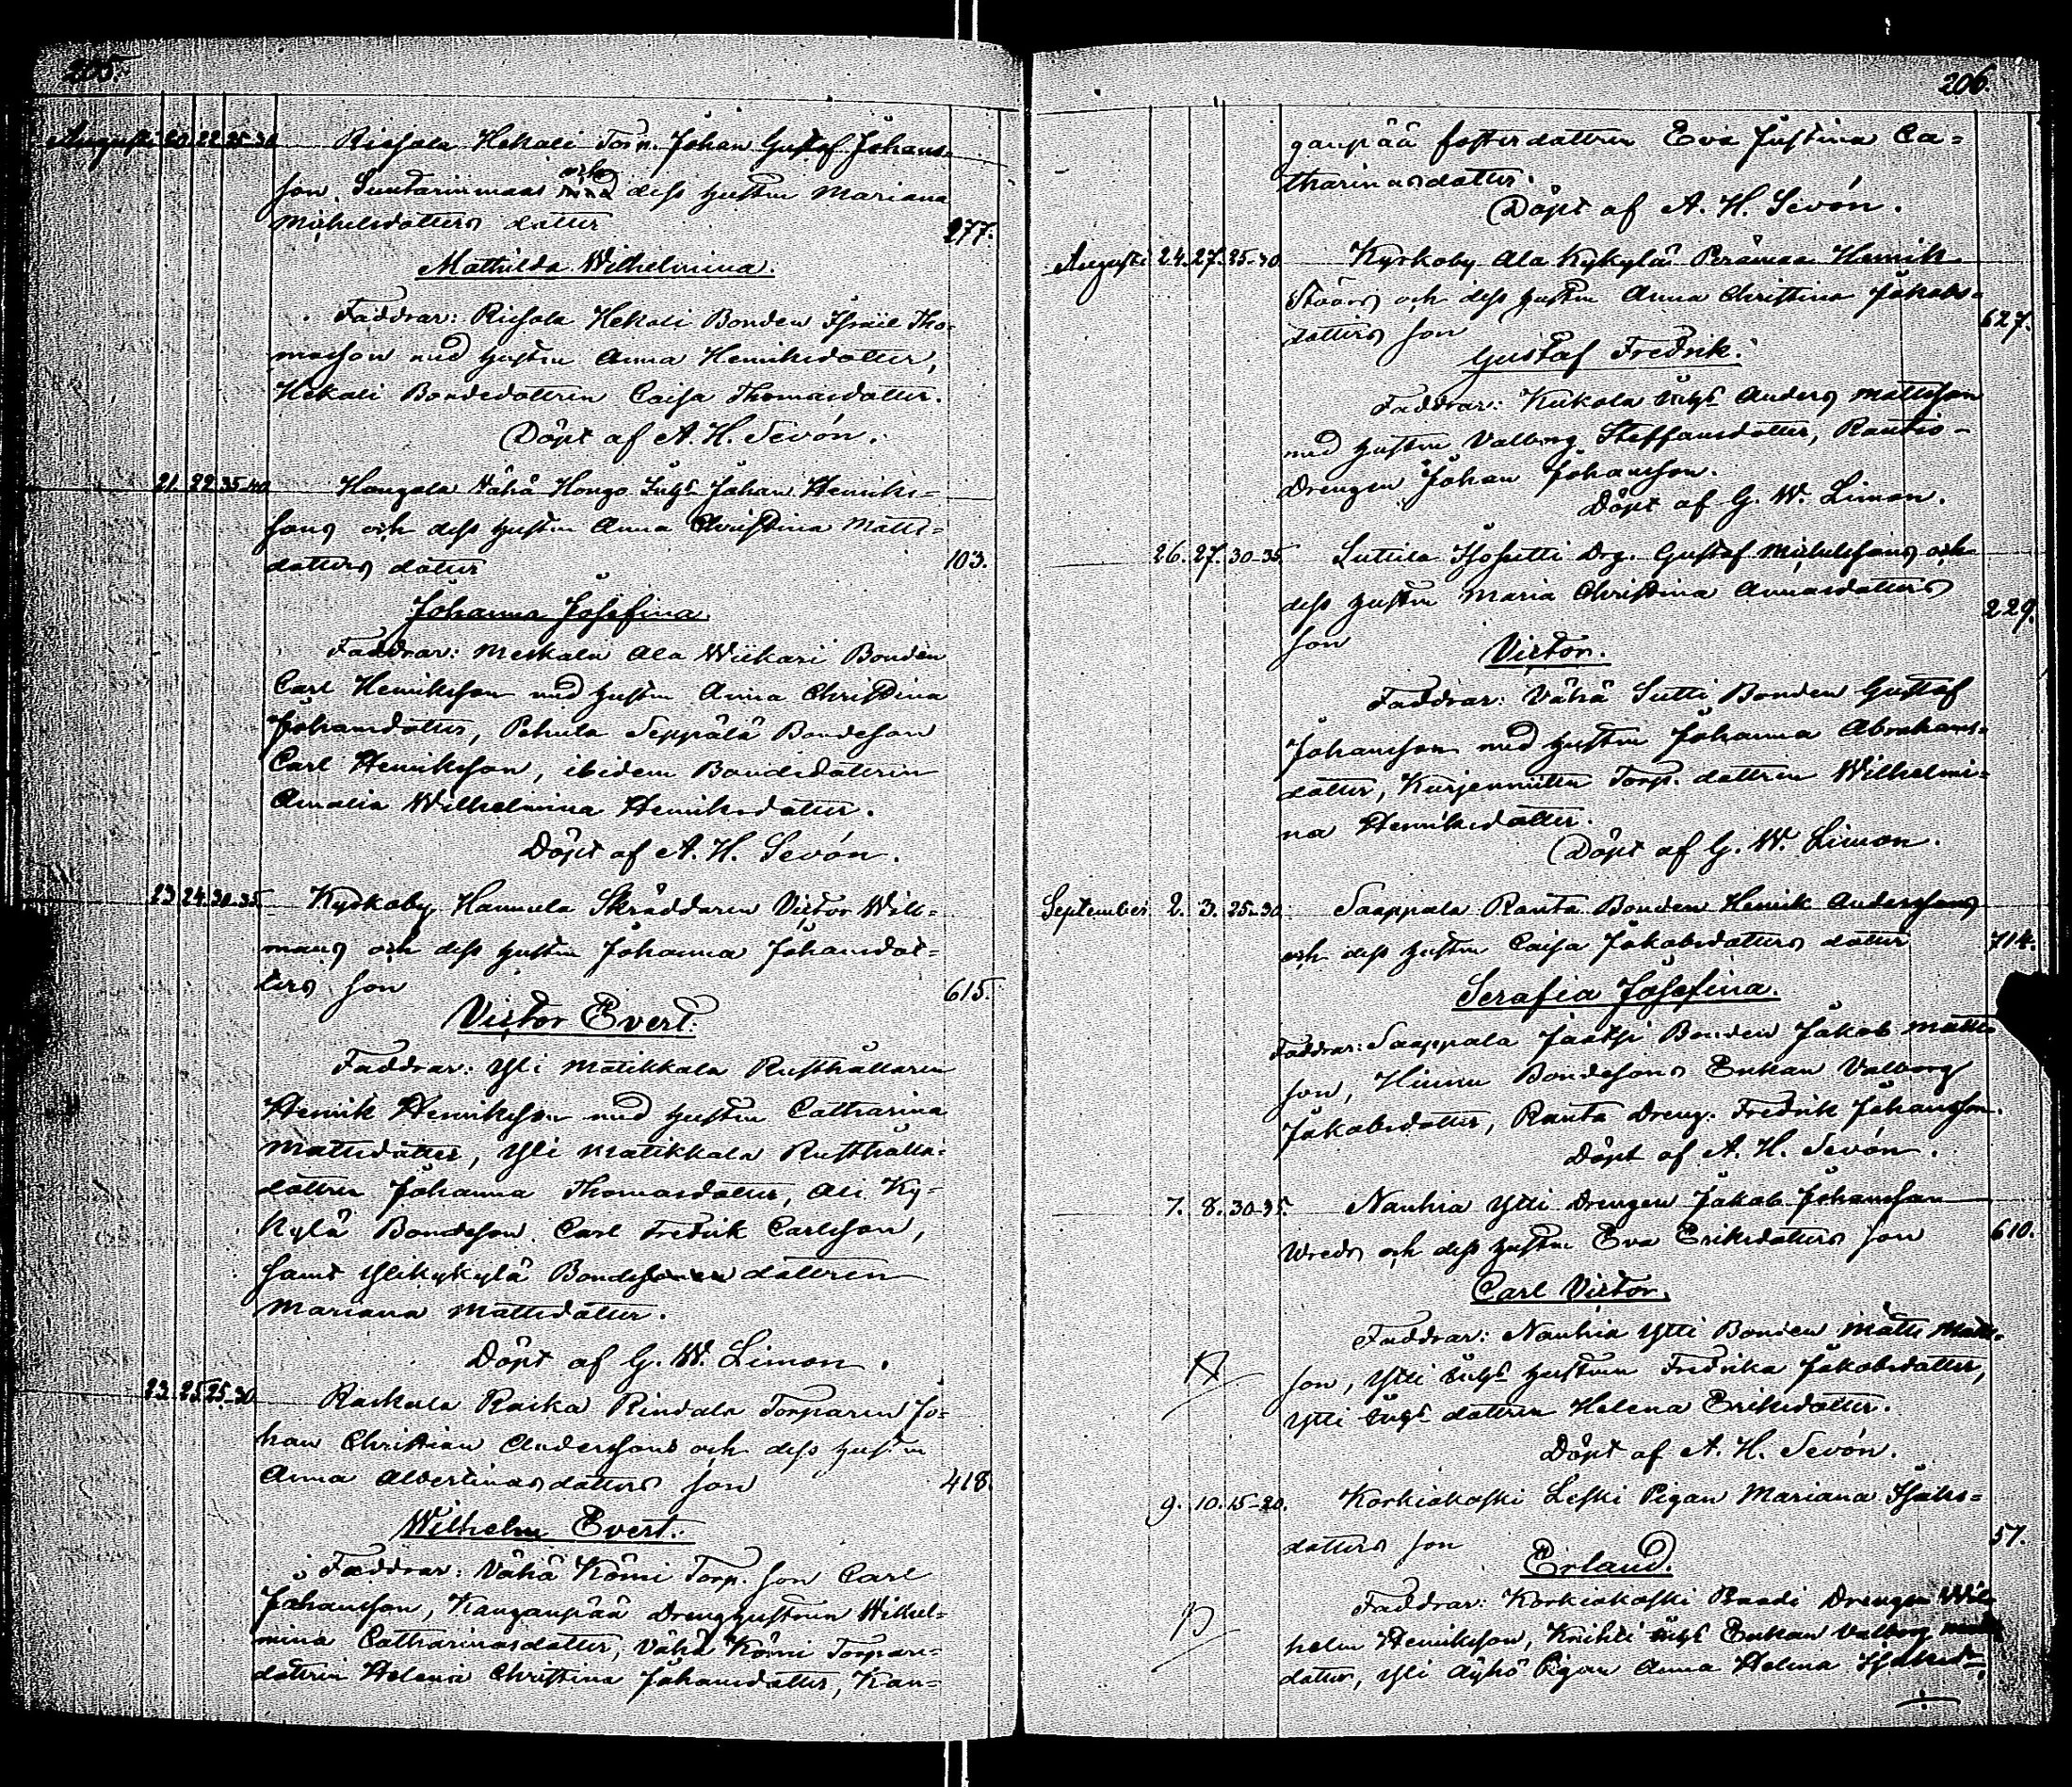 205.
Augusti 20. 22. 25-30 Risola Hekali Torp. Johan Gustaf Johans-
son Suutarinmaas och dess hustru Mariana
Michelsdotters dotter 277.
Mathilda Wilhelmina.
Faddrar: Risola Hekali Bonden Israel Tho-
masson med hustru Anna Henriksdotter,
Hekali Bondedottren Caisa Thomasdotter.
Döpt af A. H. Sevón.
21. 22. 35-40 Hongola Vähä Hongo Inhs Johan Henriks-
sons och dess hustru Anna Christina Matts-
dotters dotter 103.
Johanna Josefina.
Faddrar: Meskala Ala Wiikari Bonden
Carl Henriksson med hustru Anna Christina
Johansdotter, Pehula Seppälä Bondeson
Carl Henriksson, ibidem Bondedottren
Amalia Wilhelmina Henriksdotter.
Döpt af A. H. Sevón.
23. 24. 30-35. Kyrkoby Hannula Skräddaren Victor Will-
mans och dess hustru Johanna Johansdot-
ters son 615.
Victor Evert.
Faddrar: Yli Matikkala Rusthållaren
Henrik Henriksson med hustru Catharina
Mattsdotter, Yli Matikkala Rusthålla-
dottren Johanna Thomasdotter, Ali Ky-
kylä Bondeson Carl Fredrik Carlsson,
samt Ylikykylä dottren
Mariana Mattsdotter.
Döpt af G. W. Limon.
23. 25. 25-30 Raskala Raika Rindala Torparen Jo-
han Christian Anderssons och dess hustru
Anna Albertinasdotters son 418.
Wilhelm Evert.
Faddrar: Vähä Kömi Torp. son Carl
Johansson, Kanganpää Drenghustrun Wilhel-
mina Catharinasdotter, Vähä Kömi Torpare-
dottren Helena Christina Johansdotter, Kan-
206.
ganpää fosterdottren Eva Justina Ca-
tharinasdotter.
Döpt af A. H. Sevón.
Augusti 24. 27. 25-30 Kyrkoby Ala Kykylä Perämaa Henrik
och dess hustru Anna Christina Jakobs-
dotters son 627.
Gustaf Fredrik.
Faddrar: Kukola Inhs Anders Mattsson
med hustru Valborg Steffansdotter, Rautio-
Drengen Johan Johansson.
Döpt af G. W. Limon.
26. 27. 30-35. Sutiila Isosutti Drg. Gustaf Michelssons och
dess hustru Maria Christina Annasdotters
son 229.
Victor.
Faddrar: Vähä Sutti Bonden Gustaf
Johansson med hustru Johanna Abrahams-
dotter, Kurjenniitun Torp. dottren Wilhelmi-
na Henriksdotter.
Döpt af G. W. Limon.
September 2. 3. 25-30. Saappala Ranta Bonden Henrik Anderssons
och dess hustru Caisa Jakobsdotters dotter 714.
Serafia Josefina.
Faddrar: Saappala Jaatsi Bonden Jakob Matts-
son, Bondesons Enkan Valborg
Jakobsdotter, Ranta Dreng. Fredrik Johansson.
Döpt af A. H. Sevón.
7. 8. 30-35. Nauhia Ytti Drengen Jakob Johansson
Wreds och dess hustru Eva Eriksdotters son 610.
Carl Victor.
Faddrar: Nauhia Ytti Bonden Matts Matts-
son, Ytti Inhs hustrun Fredrika Jakobsdotter,
Ytti Inhs dottren Helena Eriksdotter.
Döpt af A. H. Sevón.
9. 10. 15-20. Korkiakoski Leski Pigan Mariana Isaks-
dotters son 57.
Erland.
Faddrar: Korkiakoski Paadi Drengen Wil-
helm Henriksson, Inhs Enkan Valborg
dotter, Yli Äyhö Pigan Anna Helena Isaksd-